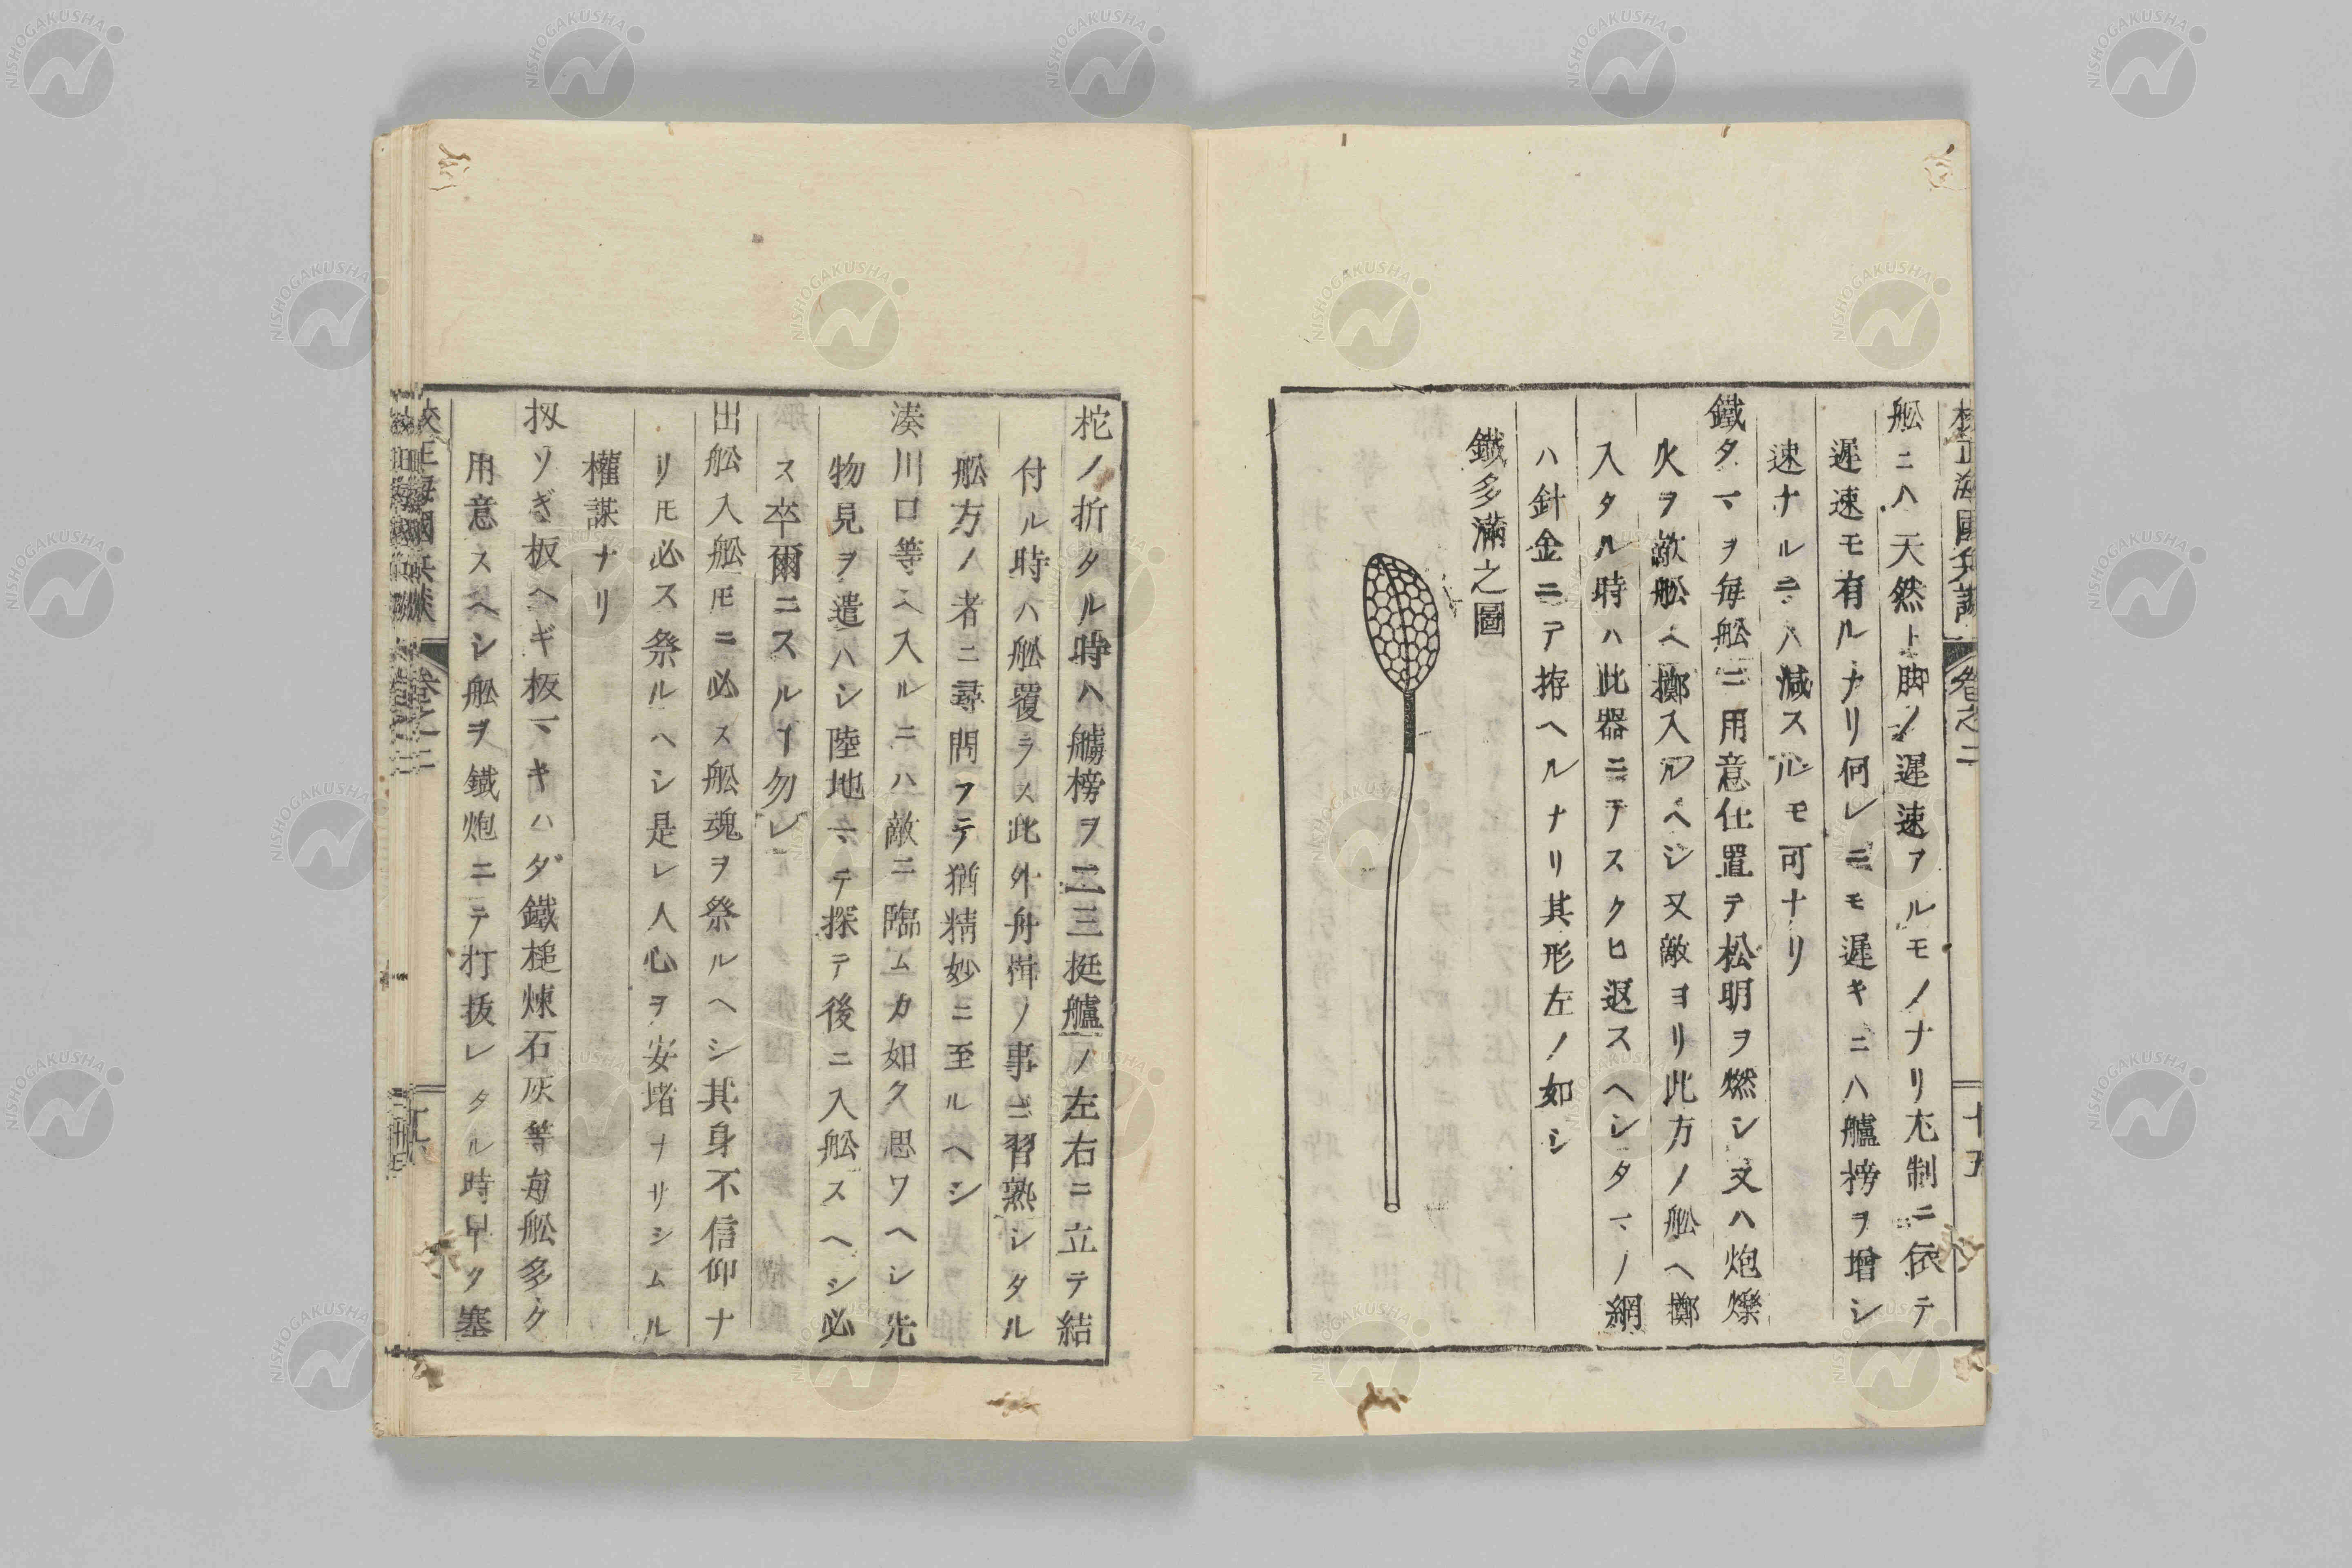 校正海國兵談 卷之二 十五
舩ニハ天然ト脚ノ遅速アルモノナリ尤制ニ依テ
遅速モ有ルナリ何レニモ遅キニハ艫榜ヲ增シ
速ナルニハ減スルモ可ナリ
鐵タマヲ毎舩ニ用意仕置テ松明ヲ燃シ又ハ炮爍
火ヲ敵舩ヘ擲入ルヘシ又敵ヨリ此方ノ舩ヘ擲
入タル時ハ此器ニテスクヒ返スヘシタマノ網
ハ針金ニテ拵ヘルナリ其形左ノ如シ
鐵多滿之圖
柁ノ折タル時ハ艫榜ヲ二三挺艫ノ左右ニ立テ結
付ル時ハ舩覆ラス此外舟楫ノ事ニ習熟シタル
舩方ノ者ニ尋問フテ猶精妙ニ至ルヘシ
湊川口等ヘ入ルニハ敵ニ臨ムカ如ク思ワヘシ先
物見ヲ遣ハシ陸地マテ探テ後ニ入舩スヘシ必
ス卒爾ニスルヿ勿レ
出舩入舩𪜈ニ必ス舩魂ヲ祭ルヘシ其身不信仰ナ
リ𪜈必ス祭ルヘシ是レ人心ヲ安堵ナサシムル
權謀ナリ
扨ソぎ板ヘギ板マキハダ鐵槌煉石灰等毎舩多ク
用意スヘシ舩ヲ鐵炮ニテ打抜レタル時早ク塞
卷之二
NISHOGAKUSHA